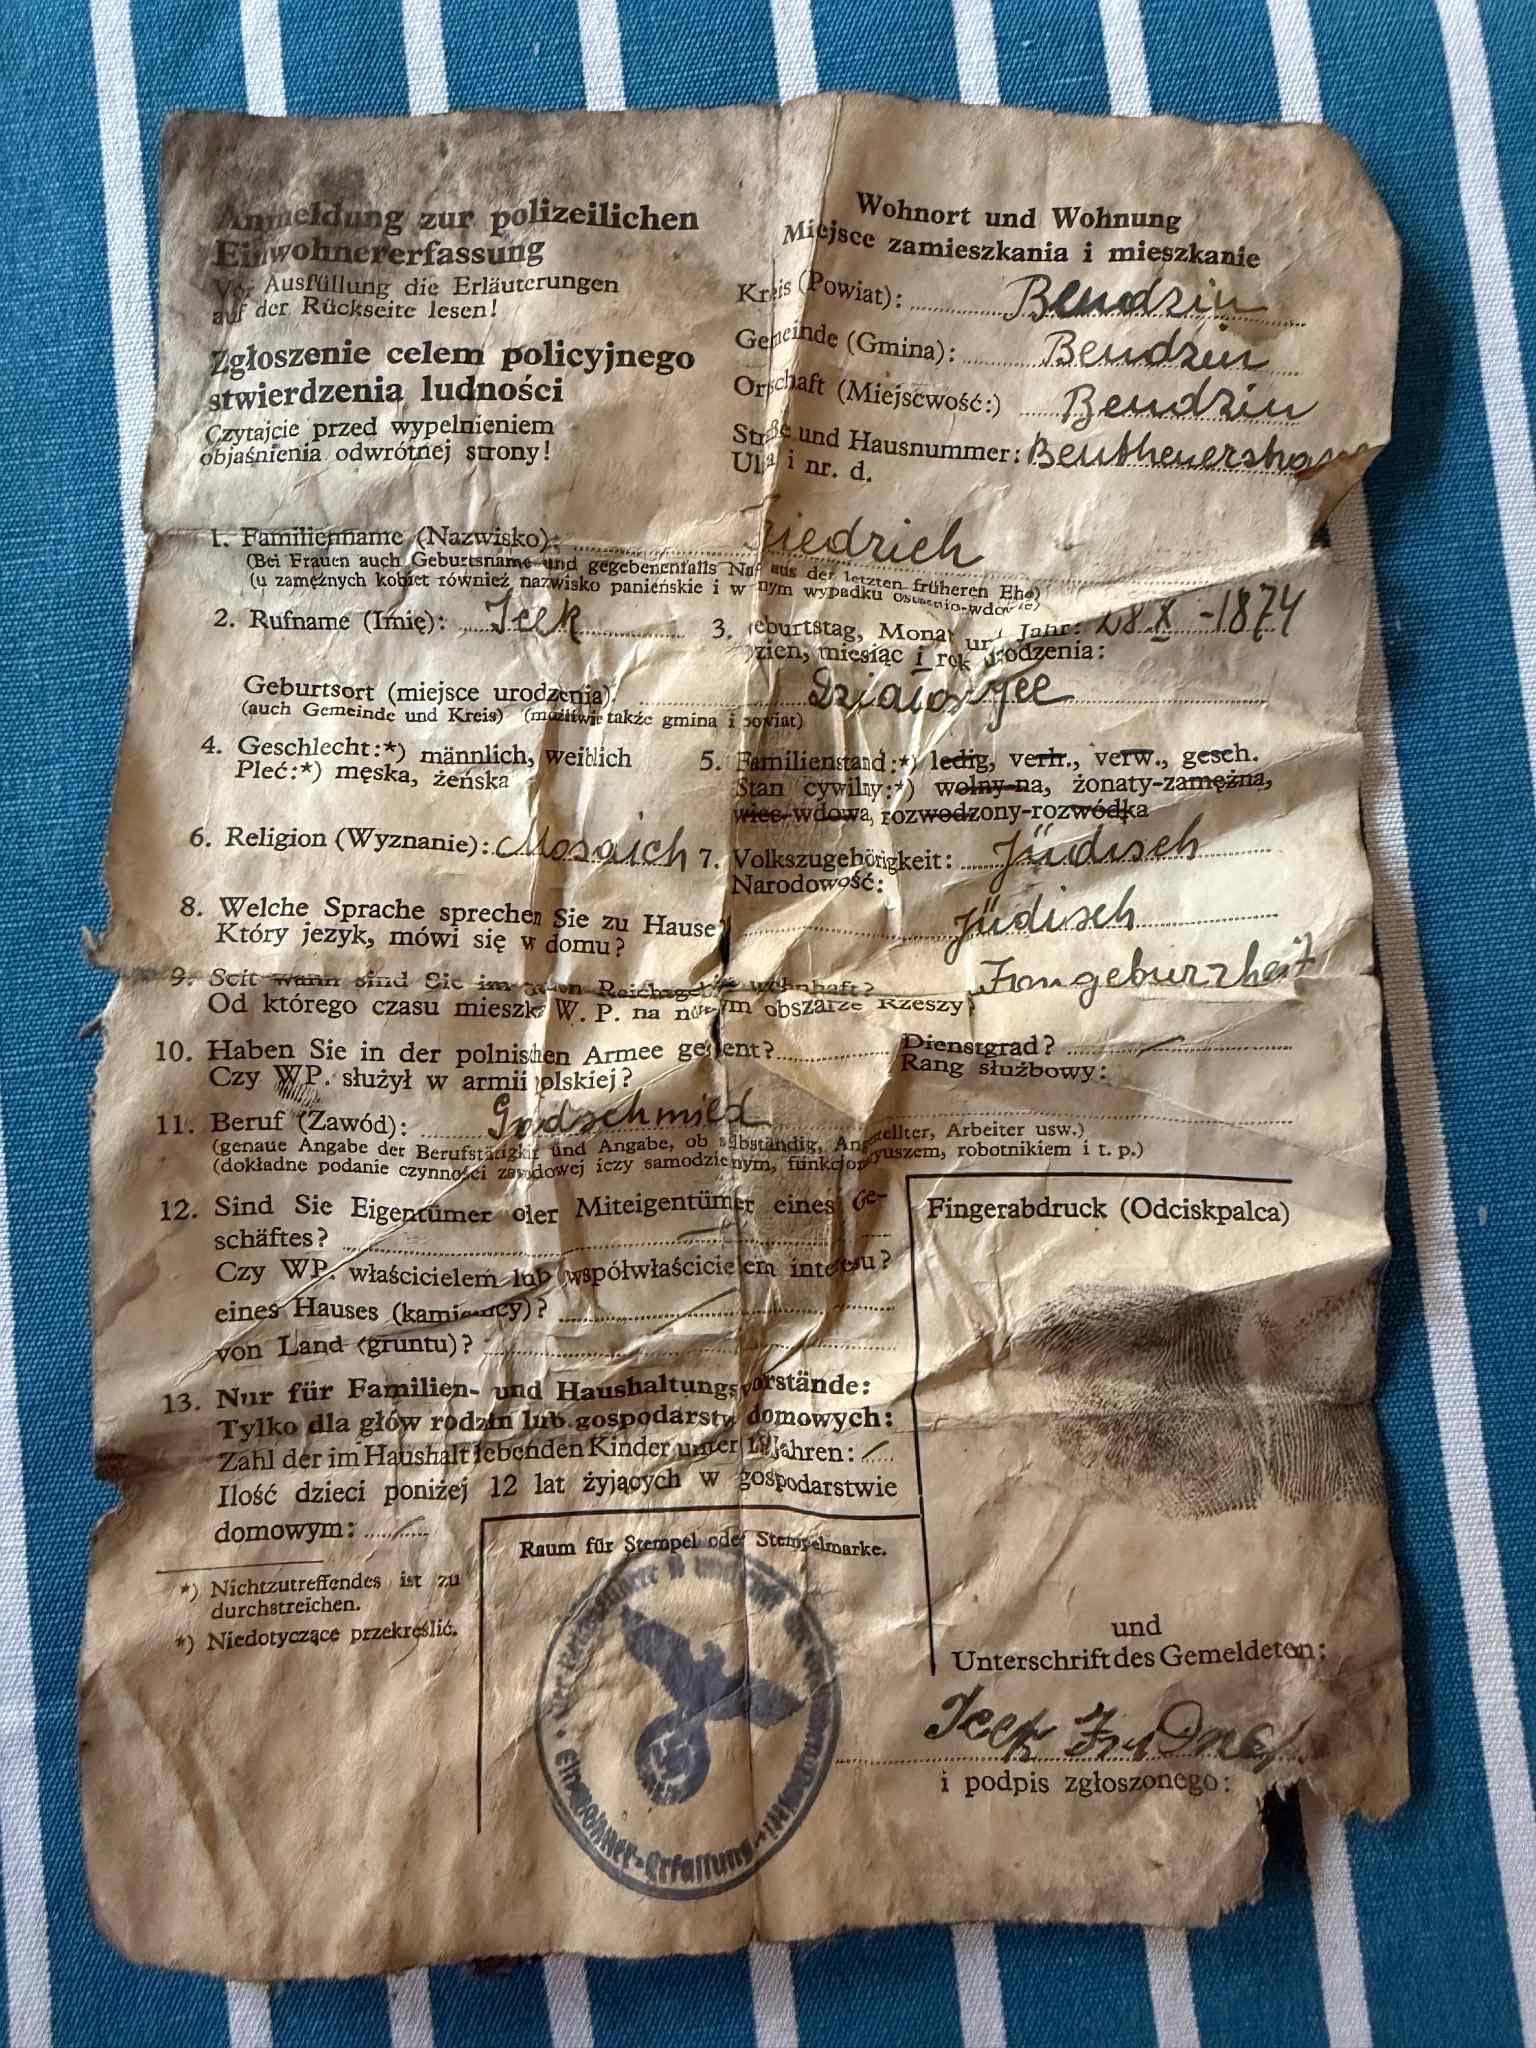 Anmeldung zur polizeilichen
Einwohnererfassung
Vor Ausfüllung die Erläuterungen
auf der Rückseite lesen!
Zgłoszenie celem policyjnego
stwierdzenia ludności
Czytajcie przed wypelnieniem
objaśnienia odwrótnej strony!
Wohnort und Wohnung
Miejsce zamieszkania i mieszkanie
Kreis (Powiat): Bendzin
Gemeinde (Gmina): Bendzin
Ortschaft (Miejscwość:) Bendzin
Straße und Hausnummer: Beutheuerstra
Ulica i nr. d.
1. Familienname (Nazwisko): Friedrich
(Bei Frauen auch Geburtsname und gegebenenfalls aus der letzten früheren Ehe)
(u zamężnych kobiet również nazwisko panieńskie i w nym wypadku
2. Rufname (Imię): Icek
3. Geburtstag, Monat und Jahr: 28 X - 1874
Dzien, miesiąc i rok urodzenia:
Geburtsort (miejsce urodzenia)
(auch Gemeinde und Kreis) (możliwie także gmina i powiat)
4. Geschlecht:*) männlich, weiblich
Pleć:*) męska, żeńska
5. Familienstand:*) ledig, verh., verw., gesch.
Stan cywilny:*) wolny-na, żonaty-zamężna,
wiec-wdowa, rozwodzony-rozwódka
6. Religion (Wyznanie): Mosaich
7. Volkszugehörigkeit: Jüdisch
Narodowość:
8. Welche Sprache sprechen Sie zu Hause? Jüdisch
Który jezyk, mówi się w domu?
9. Seit wann sind Sie im neuen Reichsgebiet wohnhaft?
Od którego czasu mieszka W. P. na nowym obszarze Rzeszy?
10. Haben Sie in der polnischen Armee gedient? Dienstgrad? —
Czy WP. służył w armii polskiej? Rang służbowy:
11. Beruf (Zawód):
(genaue Angabe der Berufstätigkeit und Angabe, ob selbständig, Angestellter, Arbeiter usw.)
(dokładne podanie czynności zawodowej iczy samodzielnym, funkcjonaryuszem, robotnikiem i t. p.)
12. Sind Sie Eigentümer oder Miteigentümer eines Ge-
schäftes? —
Czy WP. właścicielem lub współwłaścicielem interesu?
eines Hauses (kamienicy)? —
von Land (gruntu)?
13. Nur für Familien- und Haushaltungsvorstände:
Tylko dla głów rodzin lub gospodarstw domowych:
Zahl der im Haushalt lebenden Kinder unter 12 Jahren: —
Ilość dzieci poniżej 12 lat żyjących w gospodarstwie
domowym: —
*) Nichtzutreffendes ist zu
durchstreichen.
*) Niedotyczące przekreślić.
Raum für Stempel oder Stempelmarke.
Einwohner-Erfassung
Fingerabdruck (Odciskpalca)
und
Unterschrift des Gemeldeten:
i podpis zgłoszonego: